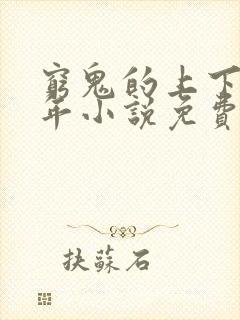 窮鬼的上下
年小說免費
扶蘇石